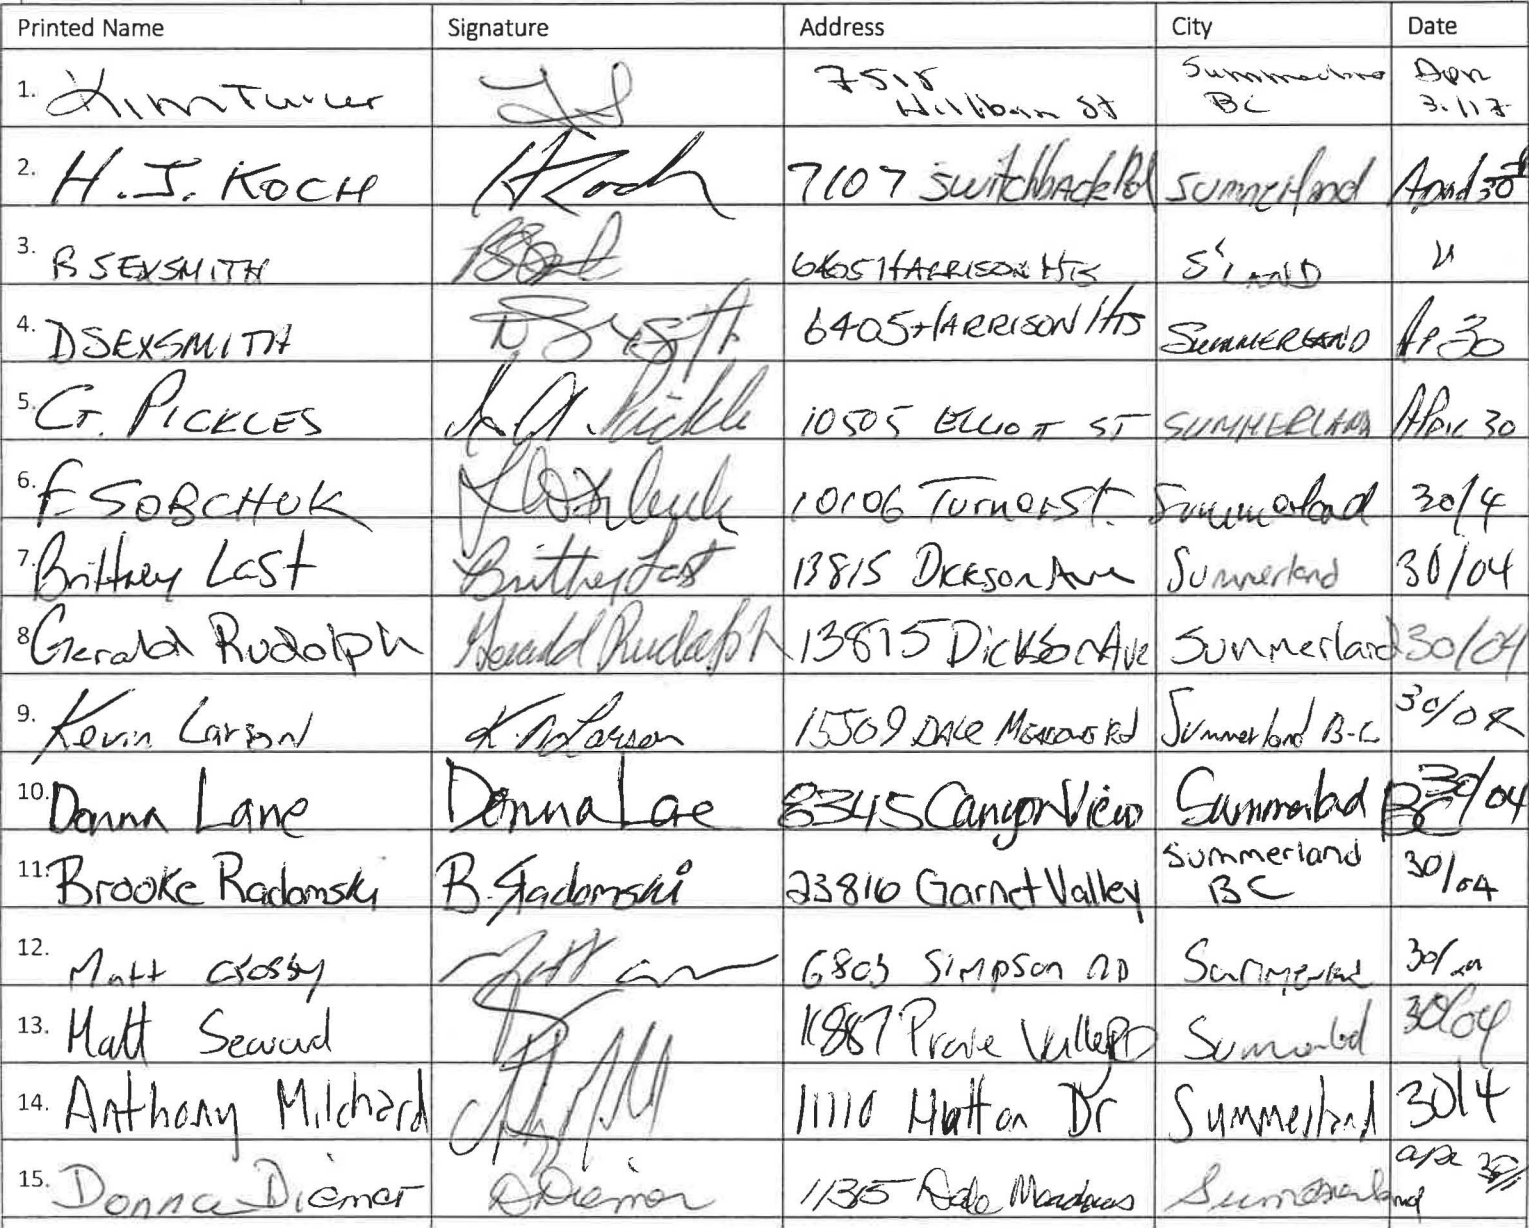 Printed Name Signature Address City Date
1. Kim Turner 7518 BC
St
2. H.J. KOCH H Koch 7107 Switchback Rd Summerland April 30
3. B SEXSMITH 6405 HARRISON HTS S'LAND "
4. D SEXSMITH D Sexsmith 6405 HARRISON HTS SUMMERLAND AP 30
5. G. PICKLES Pickles 10505 ELLIOTT ST SUMMERLAND APRIL 30
6. F SOBCHUK 10106 Turner St. Summerland 30/4
7. Brittney Last Brittney Last 13815 Dickson Ave Summerland 30/04
8 Gerald Rudolph Gerald Rudolph 13815 Dickson Ave Summerland 30/04
9. Kevin Larson K. Larson 15509 Dale Meadows Rd Summerland B-C
10. Donna Lane Donna Lane 8345 Canyon View Summerland BC 30/04
11. Brooke Radomski B. Radomski 23810 Garnet Valley Summerland BC 30/04
12. Matt Crosby Matt 6803 Simpson RD Summerland
13. Matt Seward Valley RD Summerland 30/04
14. Anthony Milchard 11110 Hutton Dr Summerland 30/4
15. Donna Diemer D Diemer Dale Meadows Summerland